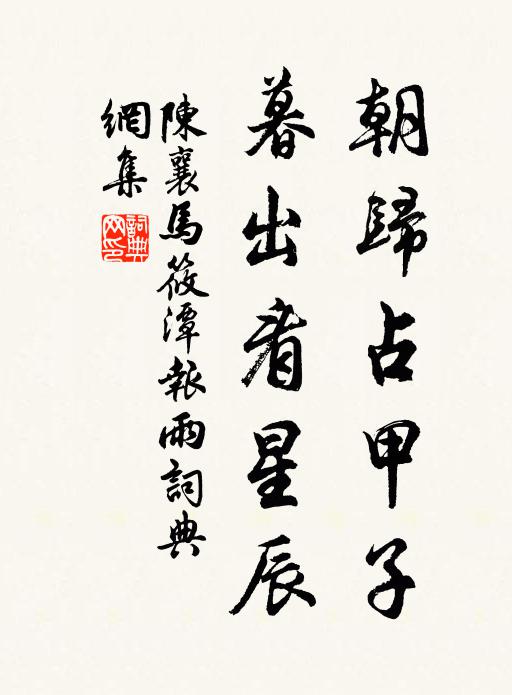 朝歸占甲子
暮出看星辰
陳襄馬筱潭報雨詞典
網集
詞典网印